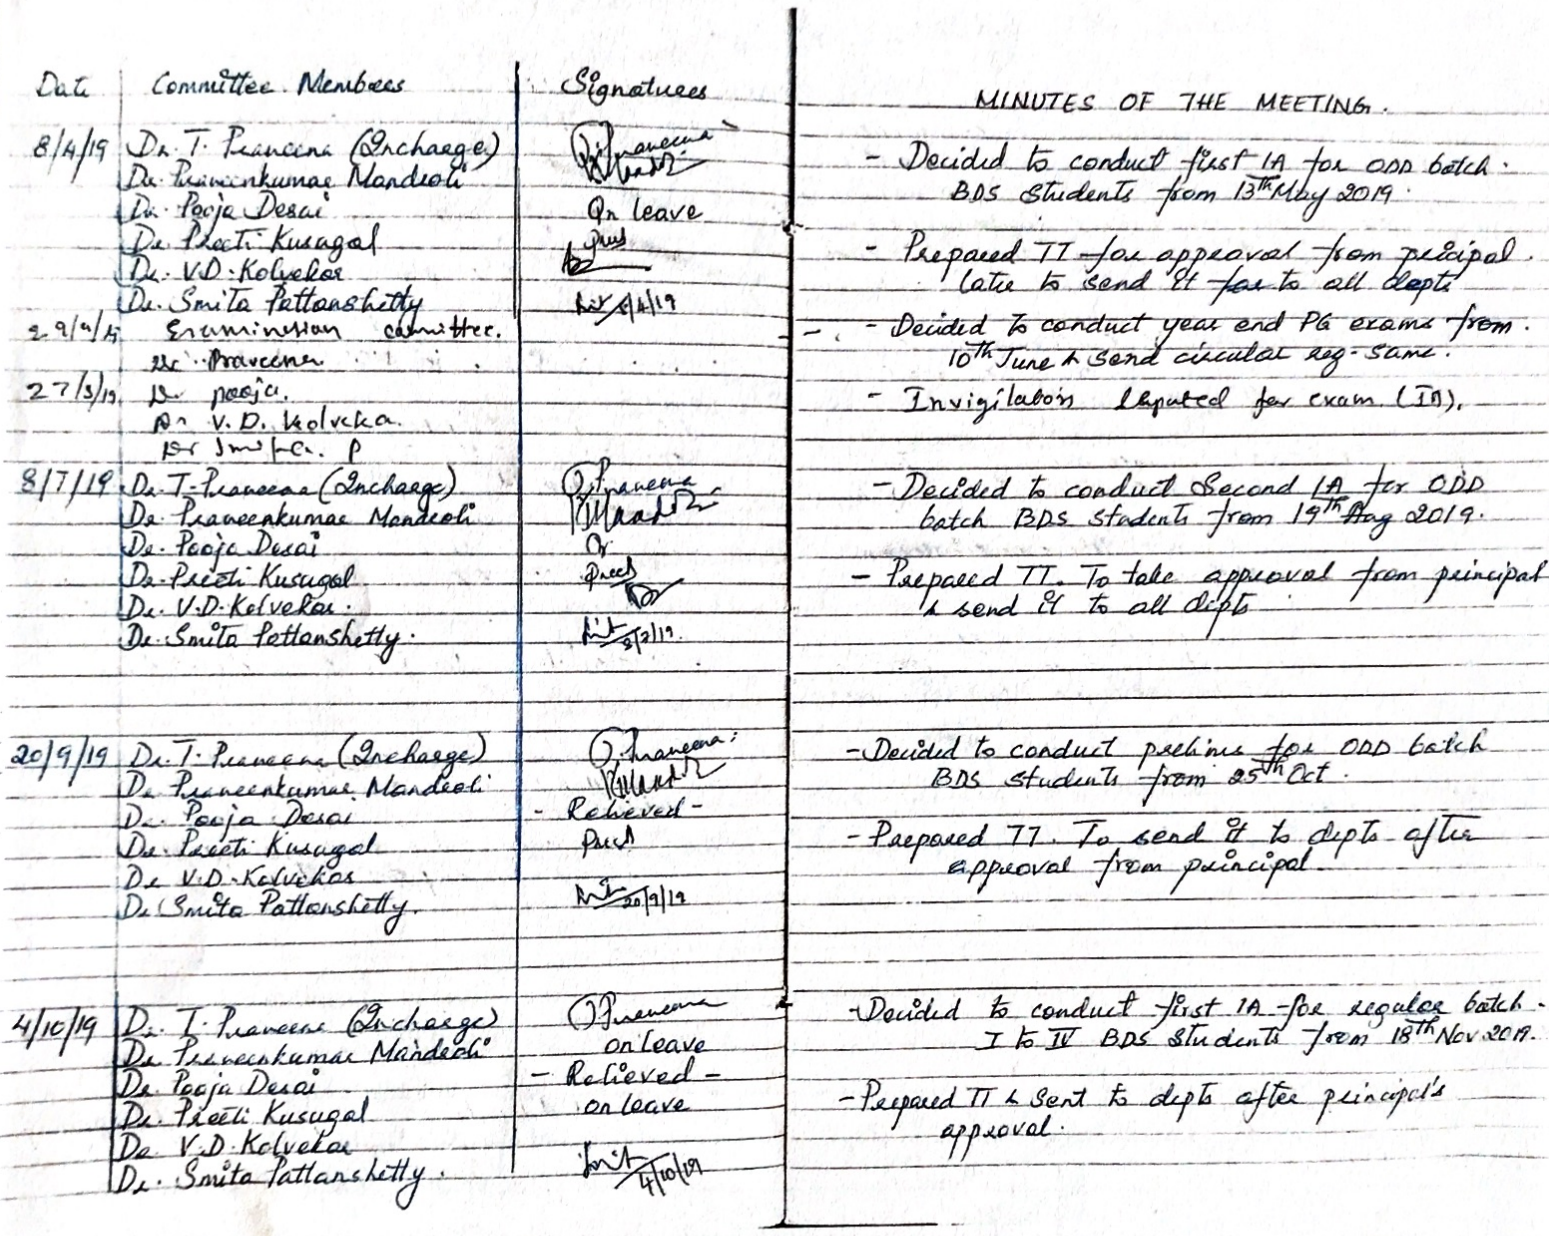 Date Committee Members Signatures
8/4/19 Dr. T. Praveena (Incharge) Praveena
Dr. Praveenkumar Mandroli
Dr. Pooja Desai On leave
Dr. Preeti Kusugal Preeti
Dr. V.D. Kolvekar
Dr. Smita Pattanshetty 8/4/19
Examination committee.
Dr. Praveena
27/5/19 Dr pooja.
Dr V. D. Kolveka.
Dr Smita. P
8/7/19 Dr. T. Praveena (Incharge) Praveena
Dr. Praveenkumar Mandroli
Dr. Pooja Desai
Dr. Preeti Kusugal Preeti
Dr. V.D. Kolvekar.
Dr. Smita Pattanshetty. 8/7/19.
20/9/19 Dr. T. Praveena (Incharge) Praveena
Dr Praveenkumar Mandroli
Dr. Pooja Desai - Relieved -
Dr. Preeti Kusugal Preeti
Dr V.D. Kolvekar
Dr Smita Pattanshetty. 20/9/19
4/10/19 Dr. T. Praveena (Incharge) Praveena
Dr. Praveenkumar Mandroli on leave
Dr. Pooja Desai - Relieved -
Dr. Preeti Kusugal on leave
Dr. V.D. Kolvekar
Dr. Smita Pattanshetty. Smit 4/10/19
MINUTES OF THE MEETING.
- Decided to conduct first IA for ODD batch.
BDS Students from 13th May 2019.
- Prepared TT for approval from pricipal.
later to send it for to all depts
- Decided to conduct year end PG exams from.
10th June & send circular reg- same.
- Invigilation deputed for exam (IA).
- Decided to conduct Second IA for ODD
batch BDS students from 19th Aug 2019.
- Prepared TT. To take approval from principal
& send it to all depts
- Decided to conduct prelims for ODD batch
BDS students from 25th Oct.
- Prepared TT. To send it to depts after
approval from principal
- Decided to conduct first IA for regular batch.
I to IV BDS Students from 18th Nov 2019.
- Prepared TT & Sent to depts after principal's
approval.